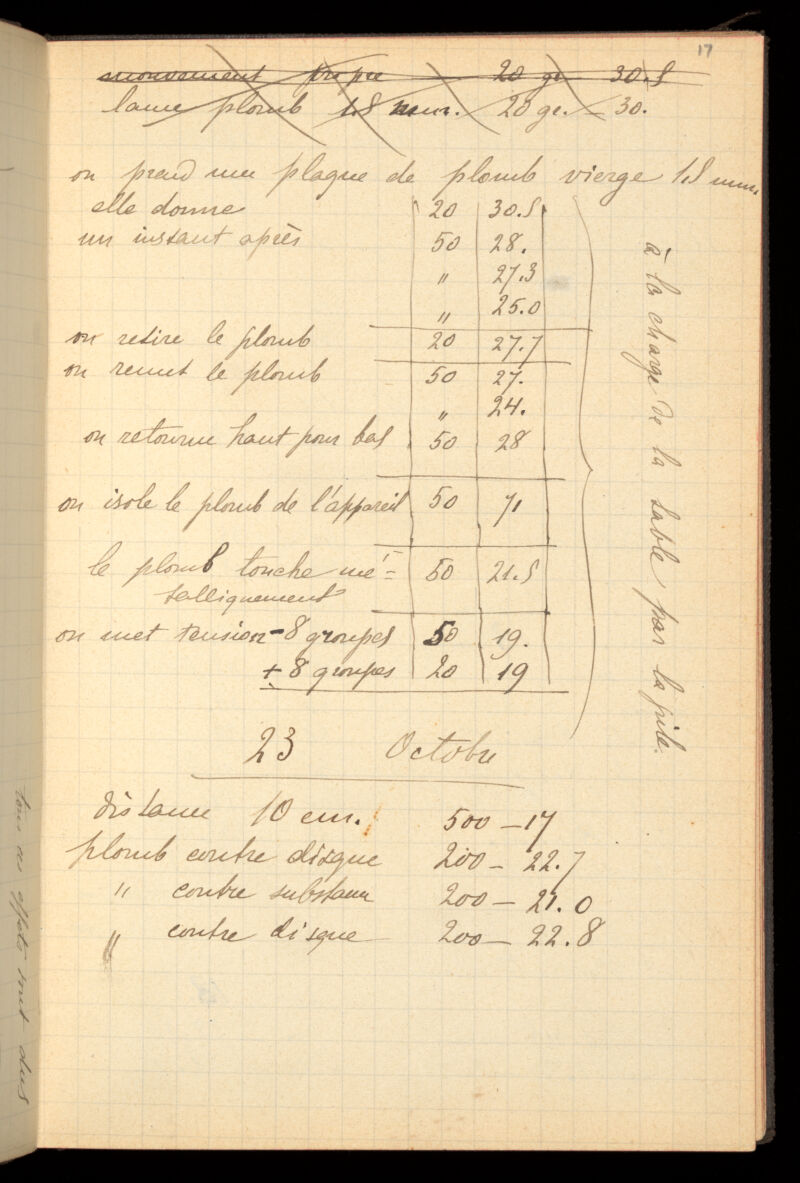 17
mouvement propre — 20 gr. 30.5
lame plomb 1.5 mm. — 20 gr. — 30.
on prend une plaque de plomb vierge 1.5 mm
elle donne 20 30.5
un instant après 50 28.
" 27.3
" 25.0
on retire le plomb 20 27.7
on remet le plomb 50 27.
" 24.
on retourne haut pour bas 50 28
on isole le plomb de l'appareil 50 71
le plomb touche mé= 50 21.5
talliquement
on met tension - 8 groupes 50 19.
+ 8 groupes 20 19
à la charge de la table par la pile.
23 Octobre
distance 10 cm. 500 — 17
plomb contre disque 200 — 22.7
" contre substance 200 — 21.0
" contre disque 200 — 22.8
tous ces effets sont dus